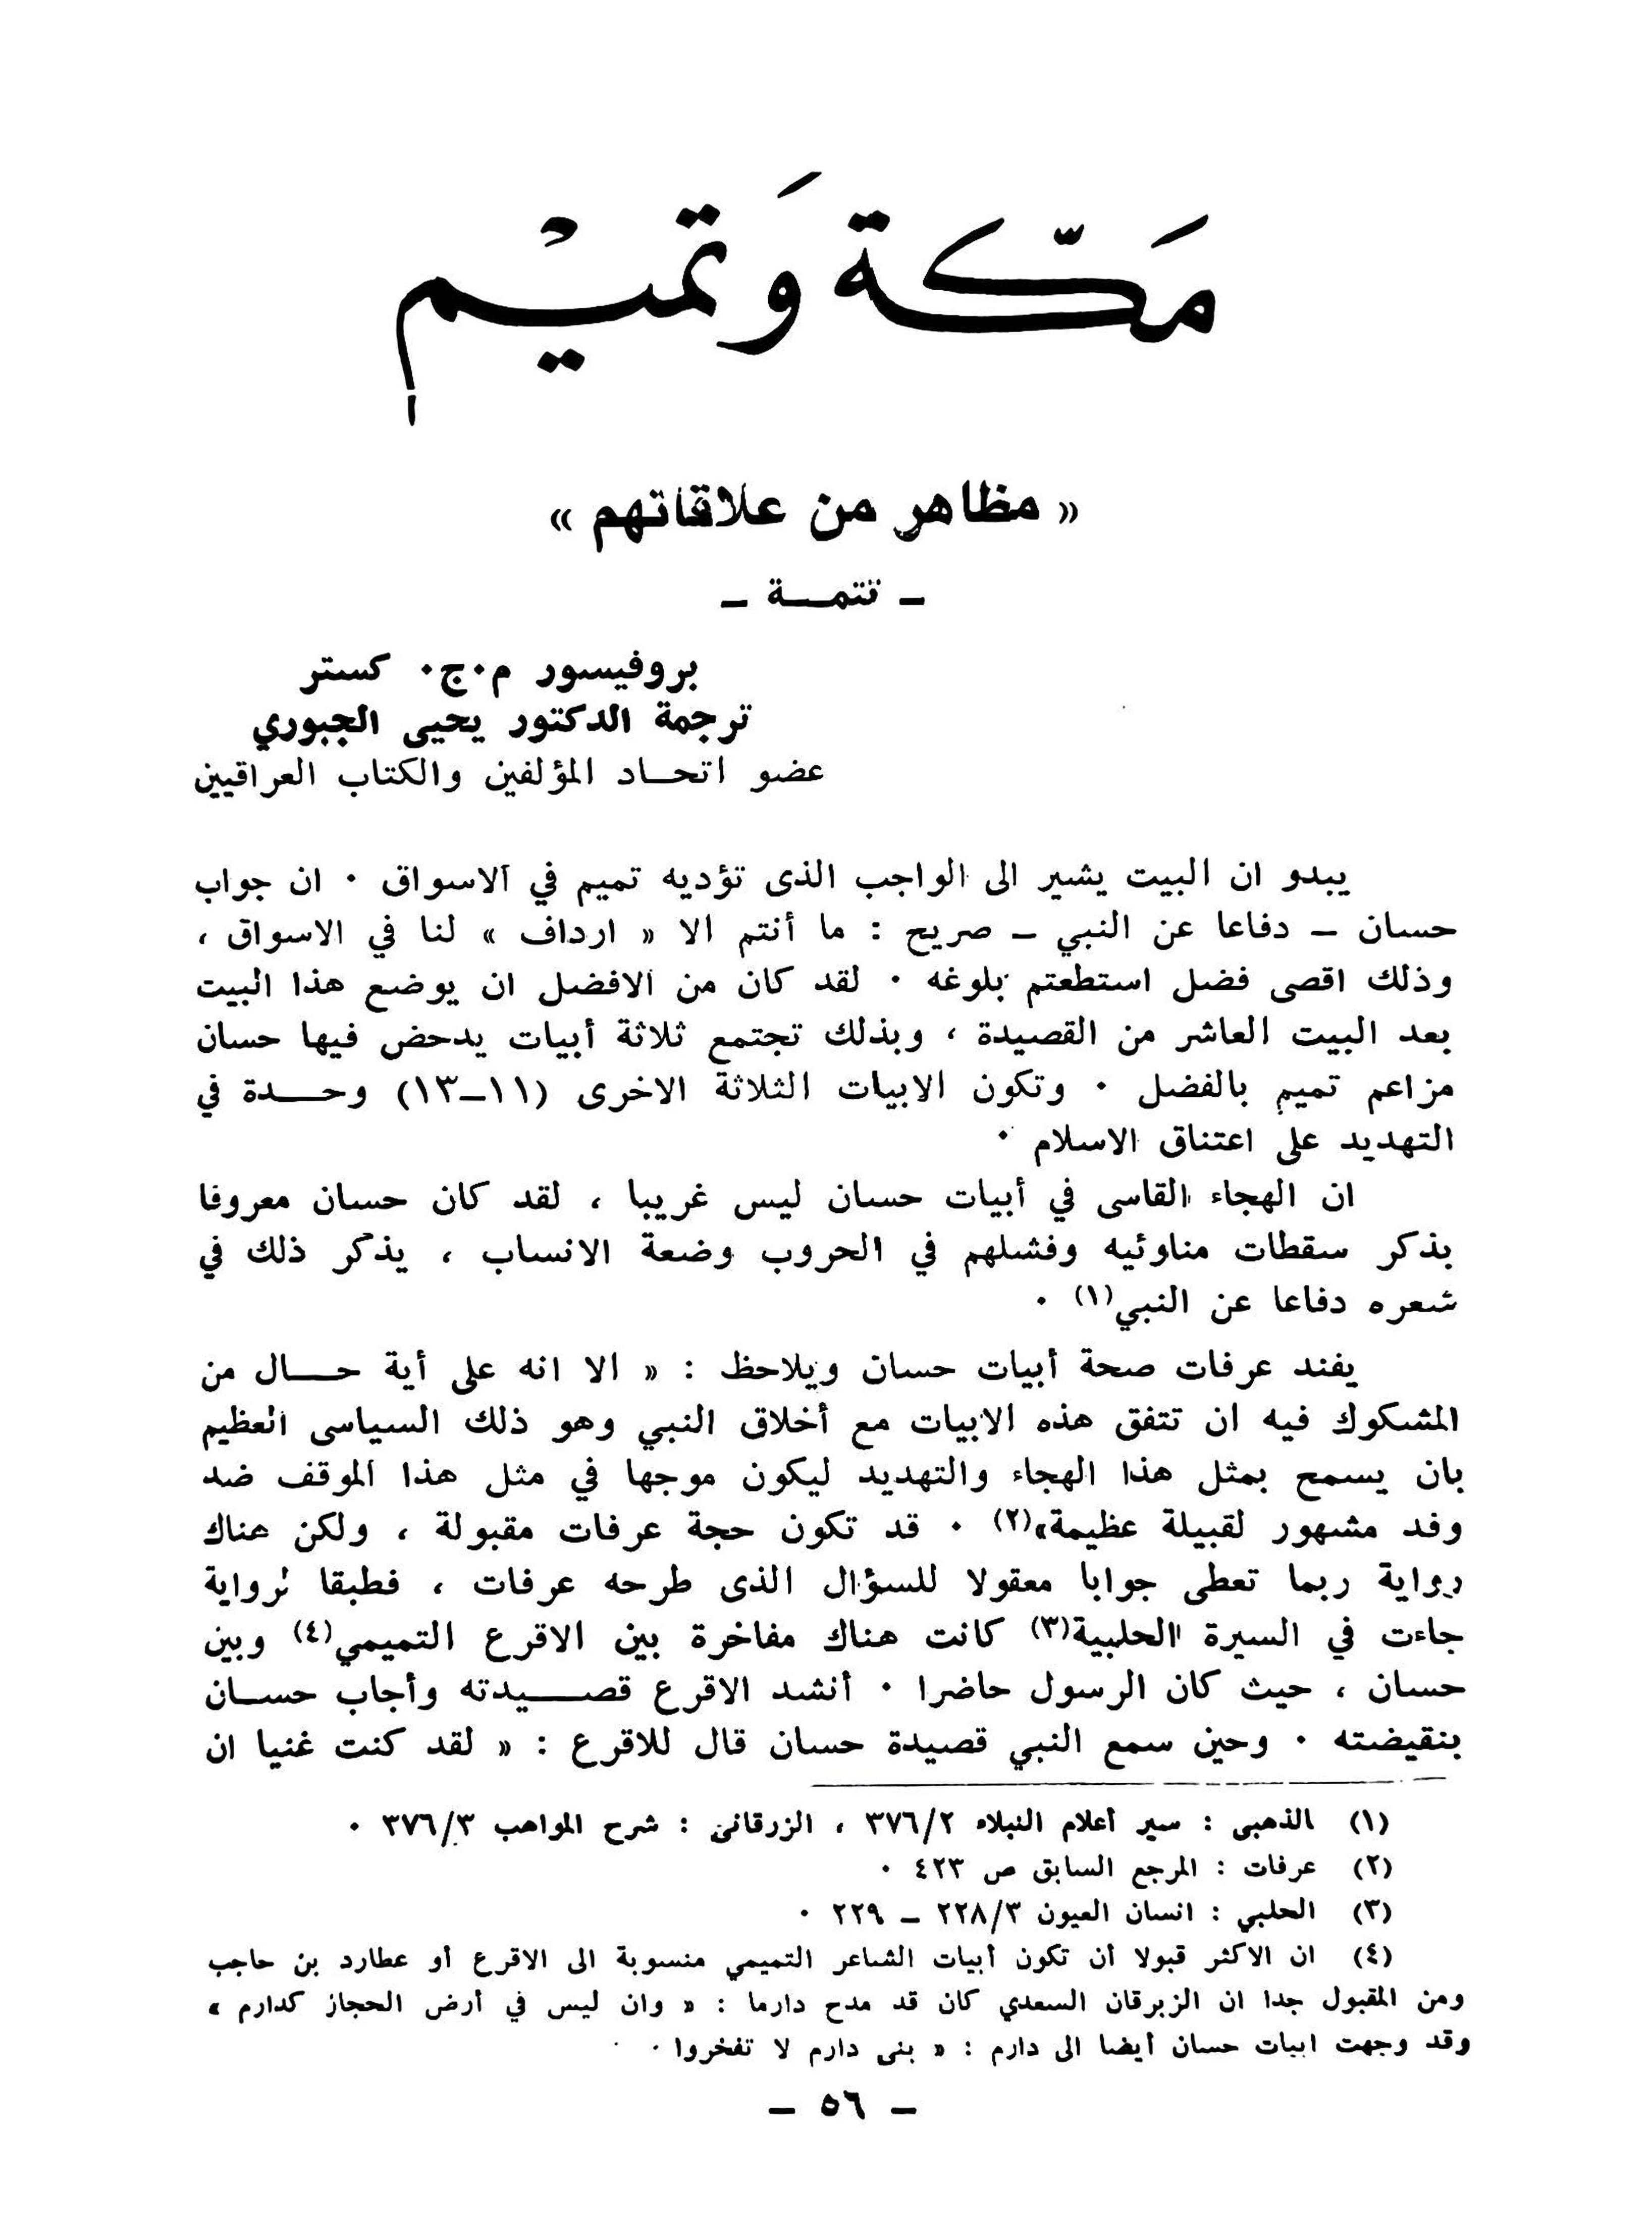 مَكّة وَتميْم
« مظاهر من علاقاتهم »
– تتمـــة –
بروفيسور م.ج. كستر
ترجمة الدكتور يحيى الجبوري
عضو اتحـاد المؤلفين والكتاب العراقيين
يبدو ان البيت يشير الى الواجب الذى تؤديه تميم في الاسواق . ان جواب
حسان – دفاعا عن النبي – صريح : ما أنتم الا « ارداف » لنا في الاسواق ،
وذلك اقصى فضل استطعتم بلوغه . لقد كان من الافضل ان يوضع هذا البيت
بعد البيت العاشر من القصيدة ، وبذلك تجتمع ثلاثة أبيات يدحض فيها حسان
مزاعم تميم بالفضل . وتكون الابيات الثلاثة الاخرى (١١–١٣) وحـــدة في
التهديد على اعتناق الاسلام .
ان الهجاء القاسى في أبيات حسان ليس غريبا ، لقد كان حسان معروفا
بذكر سقطات مناوئيه وفشلهم في الحروب وضعة الانساب ، يذكر ذلك في
شعره دفاعا عن النبي(١) .
يفند عرفات صحة أبيات حسان ويلاحظ : « الا انه على أية حـــال من
المشكوك فيه ان تتفق هذه الابيات مع أخلاق النبي وهو ذلك السياسى العظيم
بان يسمح بمثل هذا الهجاء والتهديد ليكون موجها في مثل هذا الموقف ضد
وفد مشهور لقبيلة عظيمة»(٢) . قد تكون حجة عرفات مقبولة ، ولكن هناك
رواية ربما تعطى جوابا معقولا للسؤال الذى طرحه عرفات ، فطبقا لرواية
جاءت في السيرة الحلبية(٣) كانت هناك مفاخرة بين الاقرع التميمي(٤) وبين
حسان ، حيث كان الرسول حاضرا . أنشد الاقرع قصـــيدته وأجاب حســان
بنقيضته . وحين سمع النبي قصيدة حسان قال للاقرع : « لقد كنت غنيا ان
(١) الذهبى : سير أعلام النبلاء ٣٧٦/٢ ، الزرقانى : شرح المواهب ٣٧٦/٣ .
(٢) عرفات : المرجع السابق ص ٤٢٣ .
(٣) الحلبي : انسان العيون ٢٢٨/٣ – ٢٢٩ .
(٤) ان الاكثر قبولا أن تكون أبيات الشاعر التميمي منسوبة الى الاقرع أو عطارد بن حاجب
ومن المقبول جدا ان الزبرقان السعدي كان قد مدح دارما : « وان ليس في أرض الحجاز كدارم »
وقد وجهت ابيات حسان أيضا الى دارم : « بنى دارم لا تفخروا .
– ٥٦ –